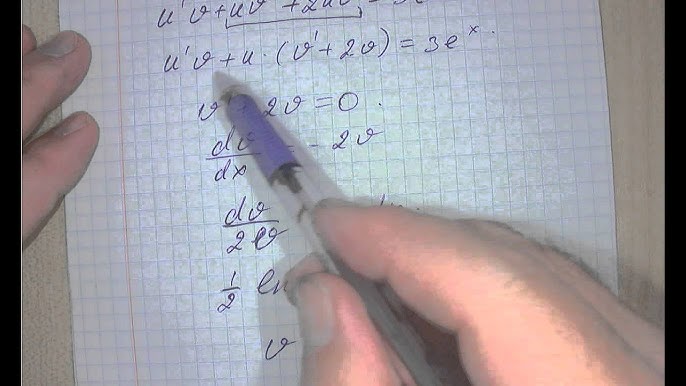 u'v + uv' + 2uv = 3e
u'v + u · (v' + 2v) = 3eˣ.
v + 2v = 0.
dv/dx = - 2v
dv/2v
1/2 ln
v